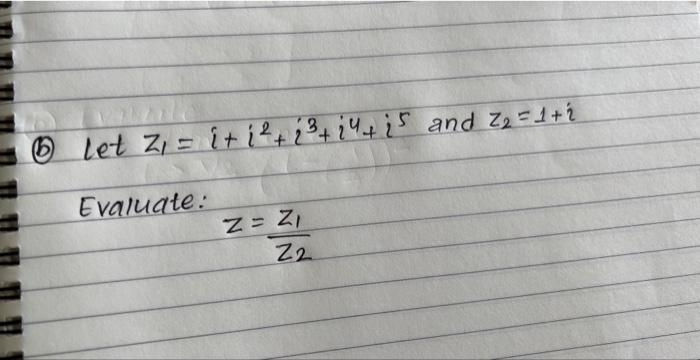 ⓑ Let Z₁ = i + i² + i³ + i⁴ + i⁵ and Z₂ = 1 + i
Evaluate:
Z = Z₁
Z₂